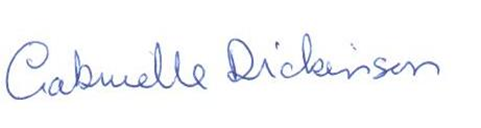 Gabrielle Dickinson